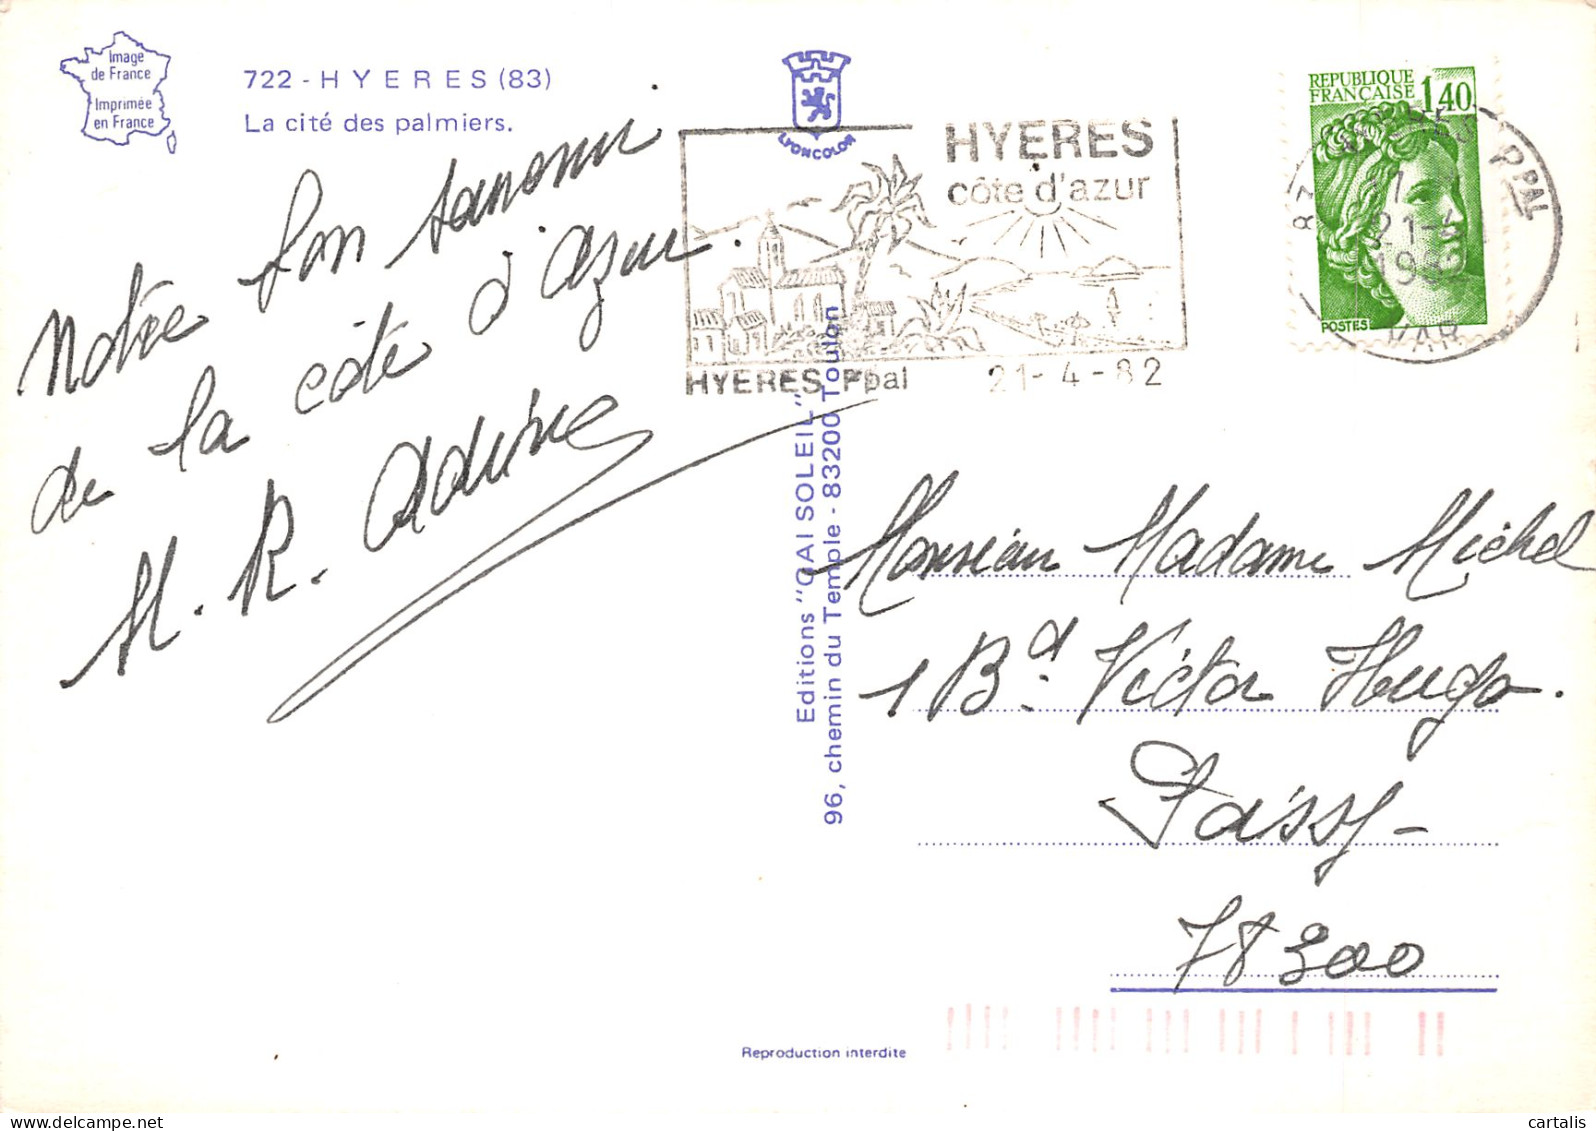 Image
de France
Imprimée
en France
722 - HYERES (83)
La cité des palmiers.
LYONCOLOR
Notre bon
de la côte d'azur.
M. R.
HYERES
côte d'azur
HYERES Ppal 21-4-82
REPUBLIQUE
FRANÇAISE 1,40
POSTES
PPAL
21-4
1982
VAR
Editions "GAI SOLEIL"
96, chemin du Temple - 83200 Toulon
Monsieur Madame Michel
1 Bd. Victor Hugo.
Poissy -
78300
Reproduction interdite
cartalis